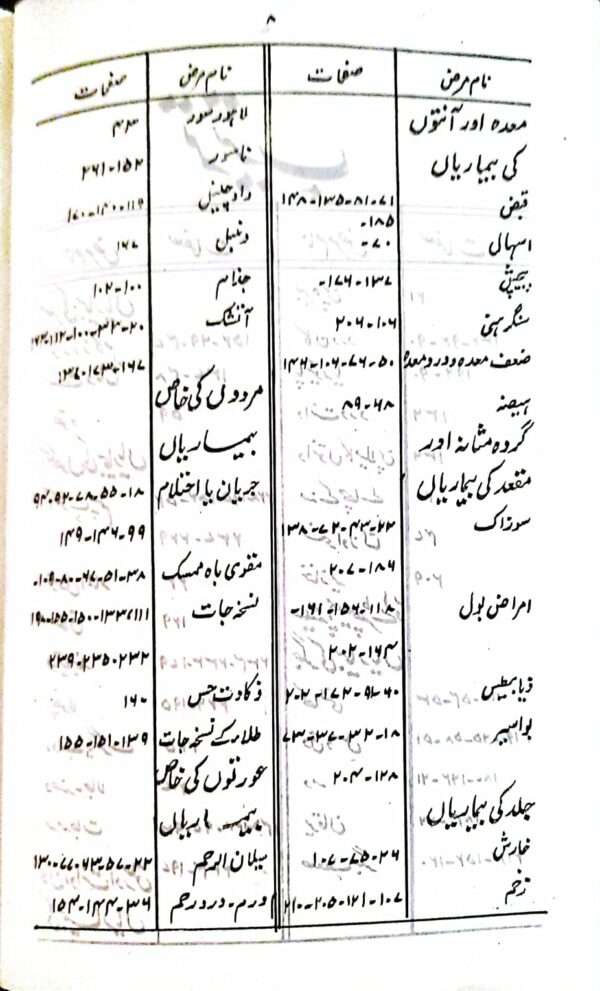 ۸
نام مرض صفحات
معدہ اور آنتوں
کی بیماریاں
قبض ۷۱-۸۱-۱۳۵-۱۴۸
۱۸۵-
اسہال ۷۰-
پیچش ۱۳۷-۱۷۶-
سنگرہنی ۱۰۶-۲۰۶
ضعف معدہ و درد معدہ ۵۰-۷۶-۱۰۶-۱۴۶
ہیضہ ۶۸-۸۹
گردہ مثانہ اور
مقعد کی بیماریاں
سوزاک ۲۲-۴۳-۷۲-۱۳۸
۱۸۶-۲۰۷
امراض بول ۱۱۸-۱۵۶-۱۶۱-
۱۶۴-۲۰۲
ذیابیطیس ۶۰-۹-۱۷۲-۲۰۲
بواسیر ۱۸-۳۲-۳۷-۷۳
۱۲۸-۲۰۴
جلد کی بیماریاں
خارش ۲۶-۷۵-۱۰۷
زخم ۱۰۷-۱۲۱-۲۰۵-۲۱۰
نام مرض صفحات
لاہور سور ۴۳
ناسور ۱۵۲-۲۶۱
داد چنبل ۱۱۹-۱۴۰-۱۷۰
دنبل ۱۶۷
جذام ۱۰۰-۱۰۲
آتشک ۲۰-۳۳-۱۰۰-۱۱۲
مردوں کی خاص
بیماریاں
جریان یا احتلام ۱۸-۵۵-۷۸-۹۲-۹۴
۹۹-۱۴۶-۱۴۹
مقوی باہ ممسک ۳۸-۵۱-۶۷-۸۰-۱۰۹-
نسخہ جات ۱۱۱-۱۳۳-۱۵۰-۱۵۵-۱۹۸
۲۳۲-۲۳۵-۲۳۹
ذکاوت حس ۱۶۰
طلاء کے نسخہ جات ۱۳۹-۱۵۱-۱۵۵
عورتوں کی خاص
بیماریاں
سیلان الرحم ۲۲-۵۷-۶۳-۷۷-۱۳۰
ورم - درد رحم ۳۶-۱۴۴-۱۵۴